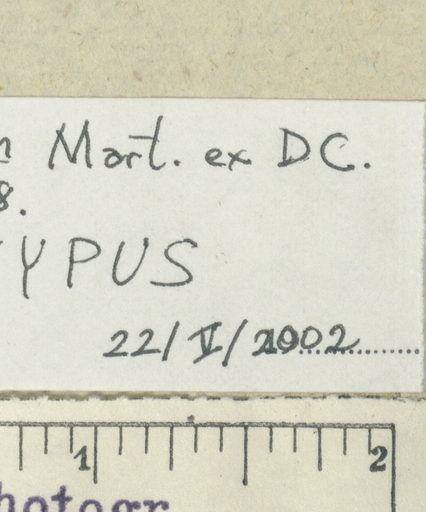 Mart. ex DC.
8.
YPUS
22/V/2002
1 2
hotogr